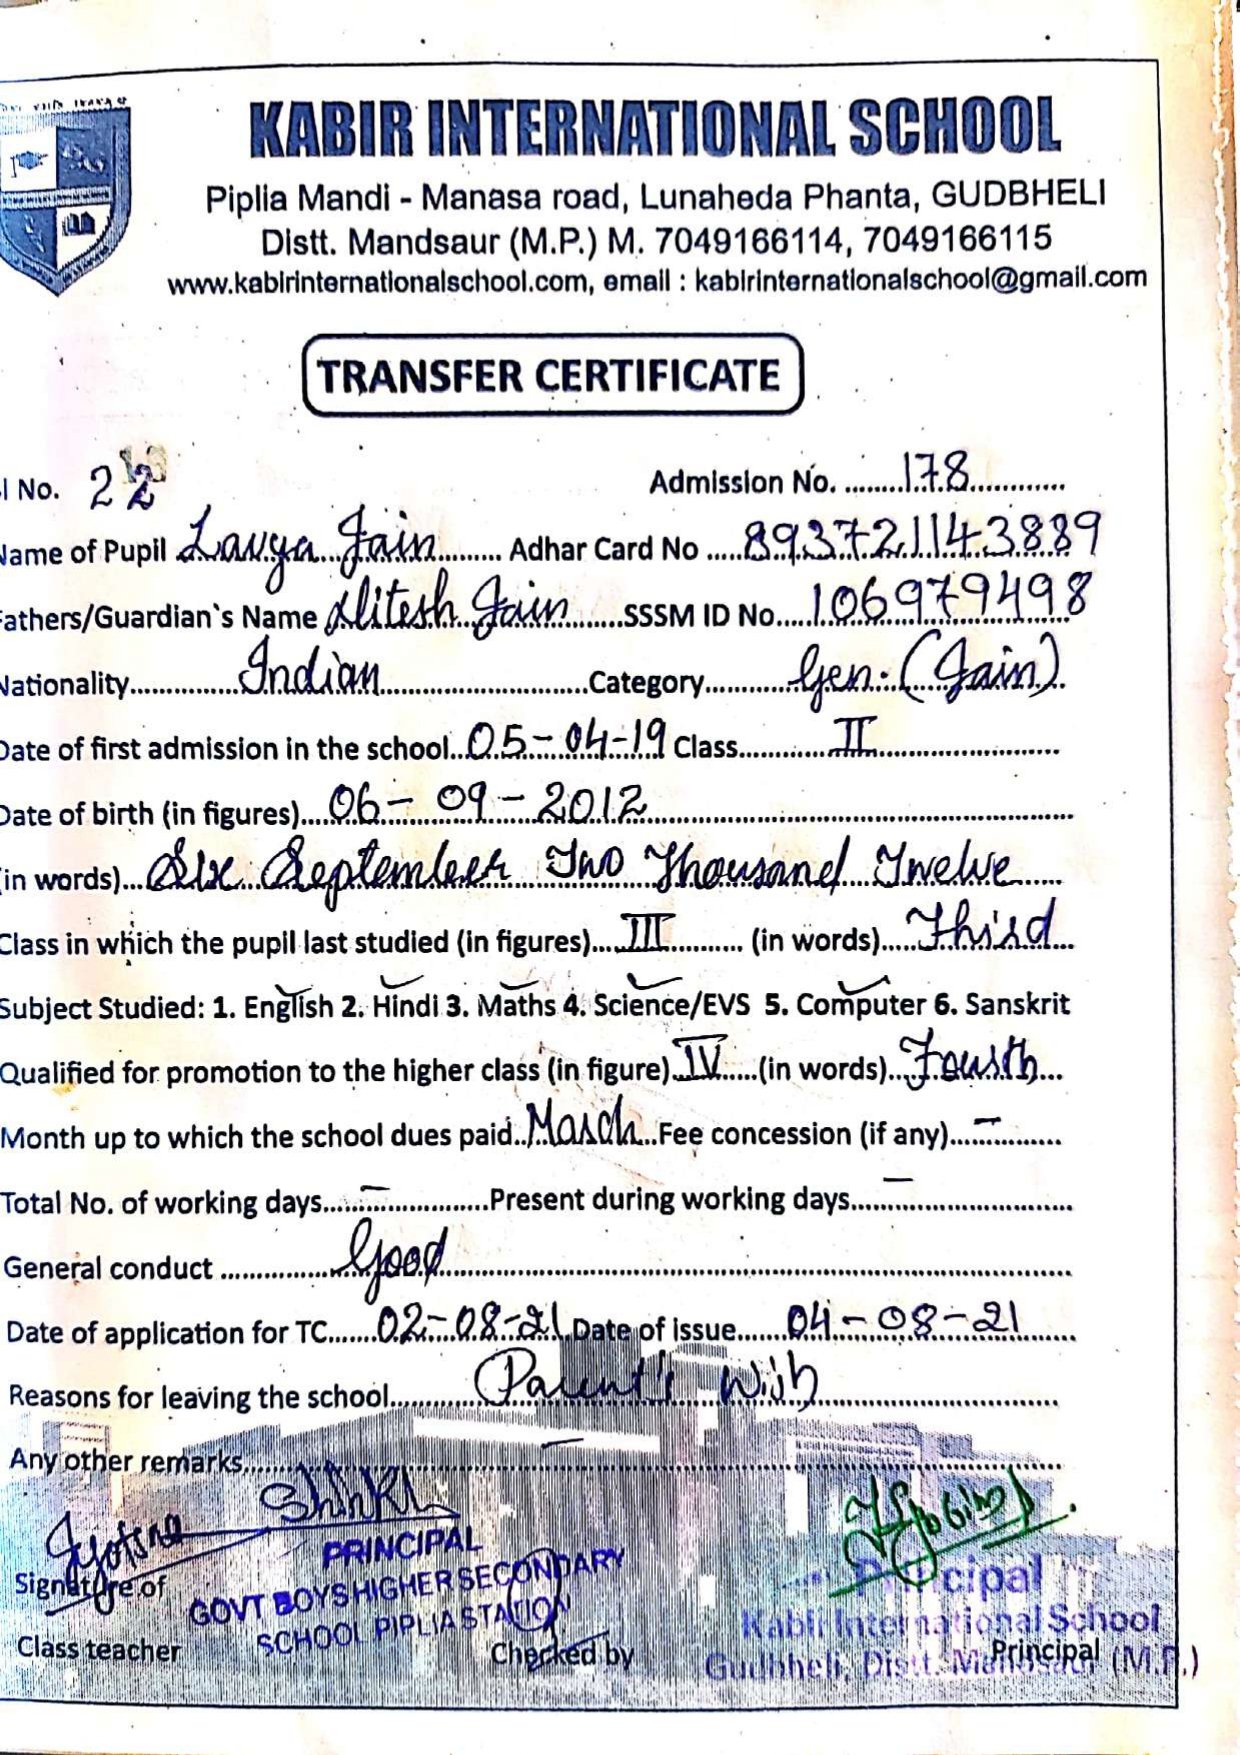 KABIR INTERNATIONAL SCHOOL
Piplia Mandi - Manasa road, Lunaheda Phanta, GUDBHELI
Distt. Mandsaur (M.P.) M. 7049166114, 7049166115
www.kabirinternationalschool.com, email : kabirinternationalschool@gmail.com
TRANSFER CERTIFICATE
l No. 22 Admission No. ........178............
Name of Pupil Lavya Jain......... Adhar Card No .....893721143889
Fathers/Guardian`s Name Hitesh Jain.......SSSM ID No.....106979498
Nationality...............Indian...........................Category............Gen. (Jain)
Date of first admission in the school..05-04-19 Class.............II.......................
Date of birth (in figures)....06-09-2012.............................................
(in words)...Six September Two Thousand Twelve......
Class in which the pupil last studied (in figures)....III.......... (in words).....Third...
Subject Studied: 1. English 2. Hindi 3. Maths 4. Science/EVS 5. Computer 6. Sanskrit
Qualified for promotion to the higher class (in figure).IV.....(in words)..Fourth...
Month up to which the school dues paid..March..Fee concession (if any)....–...........
Total No. of working days......–.............Present during working days....–.....................
General conduct ...............Good.................................................................
Date of application for TC.......02-08-21 Date of issue.......04-08-21.......
Reasons for leaving the school..........Parent's Wish..............................
Any other remarks.................................–..................................................
Jyotsna
PRINCIPAL
GOVT BOYS HIGHER SECONDARY
SCHOOL PIPLIA STATION
Signature of
Class teacher
Checked by
Principal
Kabir International School
Gudbheli, Distt. Mandsaur (M.P.)
Principal